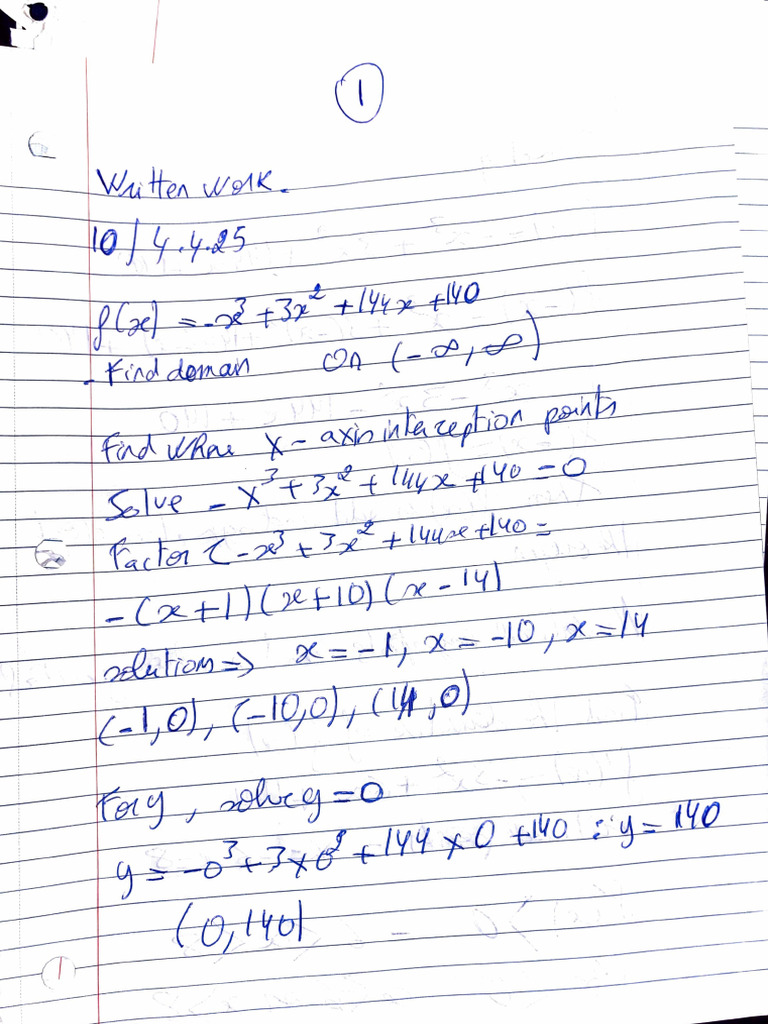 1
Written work.
10/ 4.4.25
f(x) = -x³ + 3x² + 144x + 140
- Find doman On (-∞, ∞)
Find where x-axis interception points
Solve - x³ + 3x² + 144x + 140 = 0
Factor (-x³ + 3x² + 144x + 140 =
-(x+1)(x+10)(x-14)
solutions => x = -1, x = -10, x = 14
(-1,0), (-10,0), (14,0)
For y, solve y = 0
y = -0³ + 3×0² + 144 × 0 + 140 : y = 140
(0,140)
1